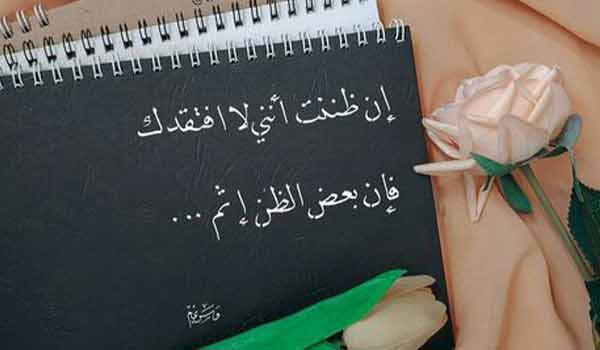 إن ظننت أنني لا افتقدك
فإن بعض الظن إثم ...